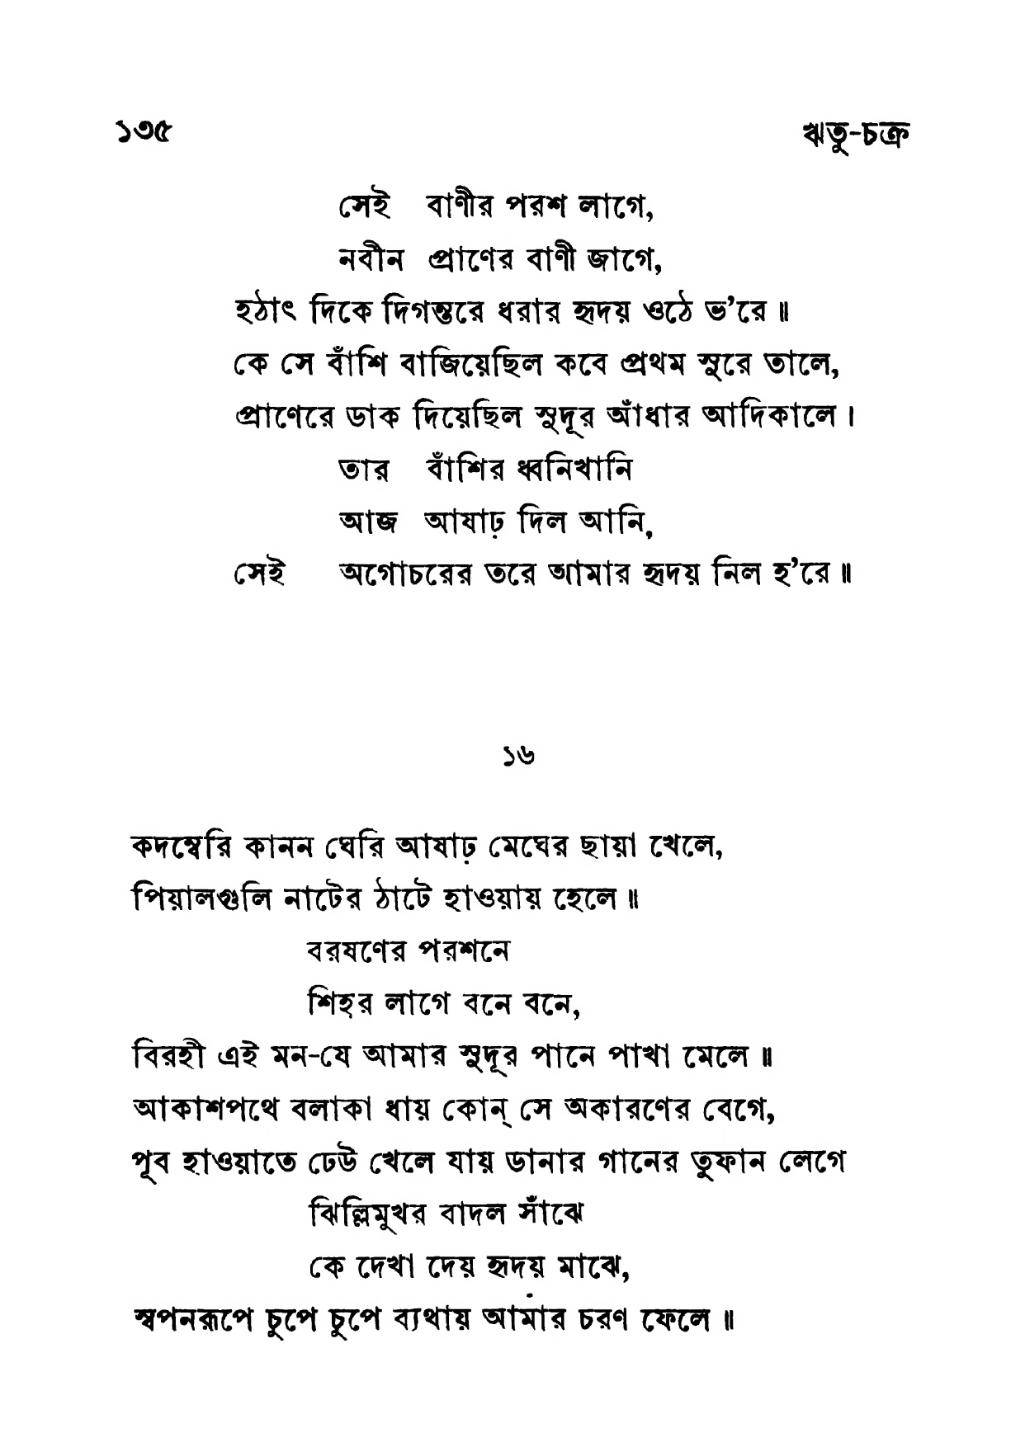 ১৩৫ ঋতু-চক্র
সেই বাণীর পরশ লাগে,
নবীন প্রাণের বাণী জাগে,
হঠাৎ দিকে দিগন্তরে ধরার হৃদয় ওঠে ভ'রে॥
কে সে বাঁশি বাজিয়েছিল কবে প্রথম সুরে তালে,
প্রাণেরে ডাক দিয়েছিল সুদূর আঁধার আদিকালে।
তার বাঁশির ধ্বনিখানি
আজ আষাঢ় দিল আনি,
সেই অগোচরের তরে আমার হৃদয় নিল হ'রে॥
১৬
কদম্বেরি কানন ঘেরি আষাঢ় মেঘের ছায়া খেলে,
পিয়ালগুলি নাটের ঠাটে হাওয়ায় হেলে॥
বরষণের পরশনে
শিহর লাগে বনে বনে,
বিরহী এই মন-যে আমার সুদূর পানে পাখা মেলে॥
আকাশপথে বলাকা ধায় কোন্ সে অকারণের বেগে,
পূব হাওয়াতে ঢেউ খেলে যায় ডানার গানের তুফান লেগে
ঝিল্লিমুখর বাদল সাঁঝে
কে দেখা দেয় হৃদয় মাঝে,
স্বপনরূপে চুপে চুপে ব্যথায় আমার চরণ ফেলে॥